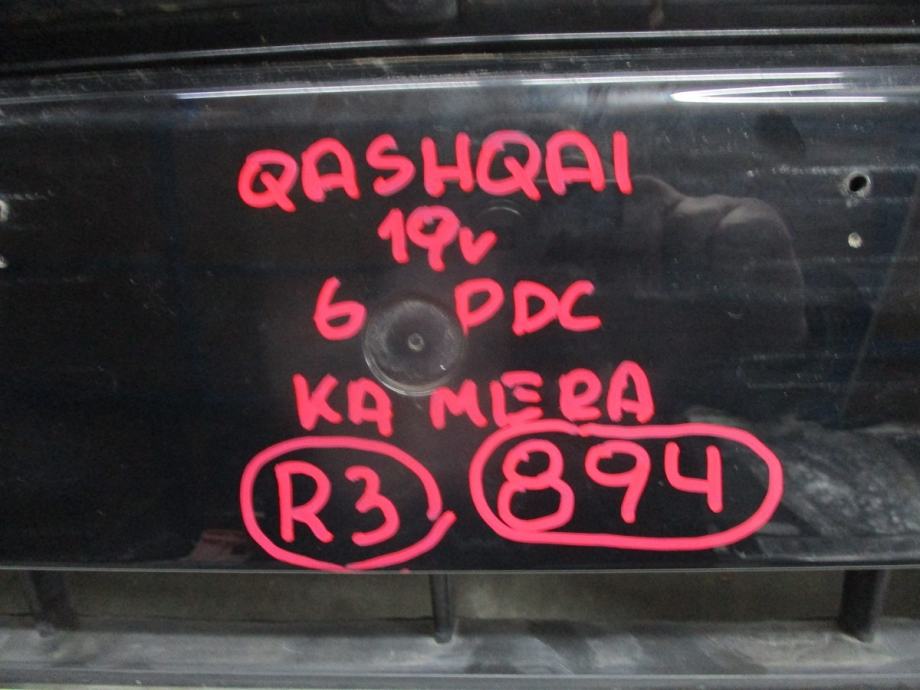 QASHQAI
19v
6 PDC
KAMERA
R3 894